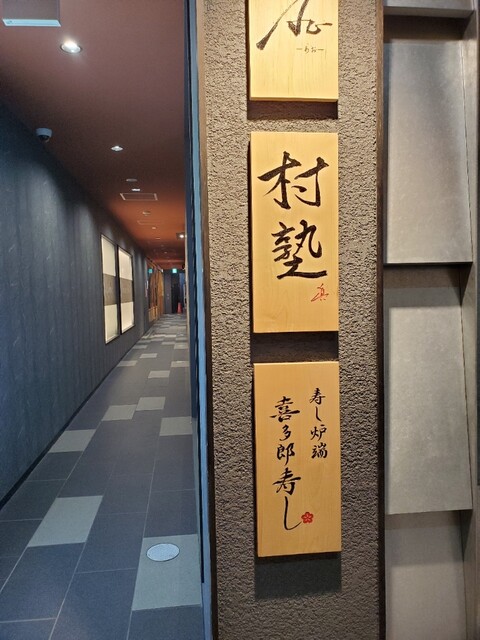 ーわおー
村塾
寿し炉端
喜多郎寿し